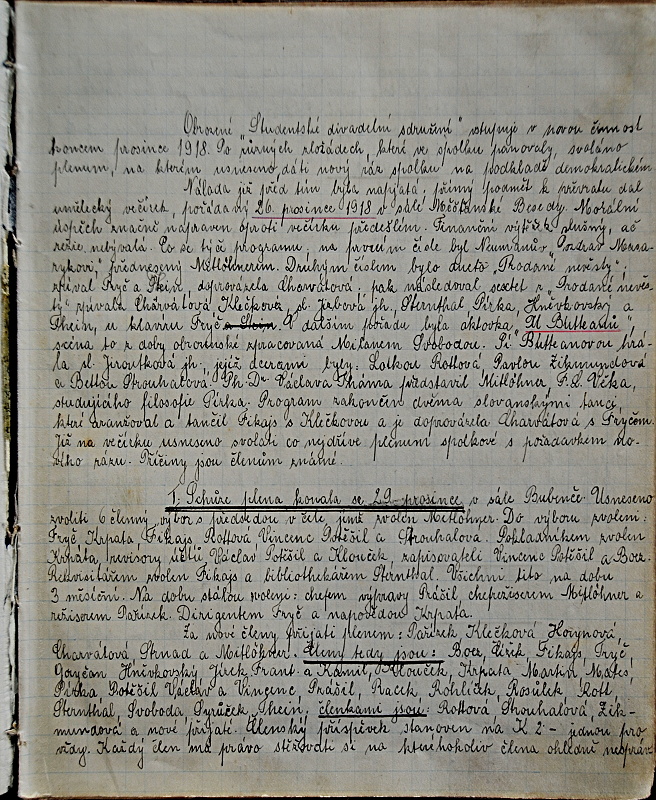 Obrozené „Studentské divadelní sdružení" vstupuje v novou činnost
koncem prosince 1918. Po různých zložádech, které ve spolku panovaly, svoláno
plenum, na kterém usneseno dáti nový ráz spolku na podkladě demokratickém
Nálada již před tím byla napjatá, přímý podnět k převratu dal
umělecký večírek, pořádaný 26. prosince 1918 v sále Měšťanské Besedy. Morální
úspěch značně napraven oproti večírku předešlém. Finanční výtěžek slušný, ač
režie nebývalá. Po se týče programu, na prvém čísle byl Neumannův „Pozdrav Masa-
rykovi," přednesený Mitlöhnerem. Druhým číslem bylo dueto „Prodané nevěsty";
zpíval Fryč a Rhein, doprovázela Charvátová; pak následoval sextet z „Prodané nevěs-
ty" zpívala Charvátová Klečková, sl. Jabová jh, Sternthal Pírka, Hněvkovský a
Rhein, u klavíru Fryč a Stein. V dalším pořadu byla aktovka „U Butteanů",
scéna to z doby obrozenské zpracovaná Milanem Svobodou. Pí Butteanovou hrá-
la sl. Jiroutková jh, jejíž dcerami byly: Lotkou Rottová Pavlou Zikmundová
a Bettou Strouhalová. Ph. Dr. Václava Tháma představil Mitlöhner F. L. Věka,
studujícího filosofie Pírka. Program zakončen dvěma slovanskými tanci,
které aranžoval a tančil Fikajs s Klečkovou a je doprovázela Charvátová s Fryčem.
Již na večírku usneseno svolati co nejdříve plenum spolkové s požadavkem no-
vého rázu. Příčiny jsou členům známé.
1. Schůze plena konala se 29. prosince v sále Bubenče. Usneseno
zvoliti 6 členný výbor s předsedou v čele jímž zvolen Mitlöhner. Do výboru zvoleni:
Fryč Krpata, Fikajs Rottová Vincenc Potěšil a Strouhalova. Pokladníkem zvolen
Krpata, revisory účtů Václav Potěšil a Klouček, zapisovateli Vincenc Potěšil a Bocz.
Rekvisitářem zvolen Fikajs a bibliothekářem Sternthal. Všichni tito na dobu
3 měsíční. Na dobu stálou voleni: chefem výpravy Prášil, chefrežiserem Mitlöhner a
režisérem Pařízek. Dirigentem Fryč a napovědou Krpata.
Za nové členy přijati plenem: Pařízek, Klečková Horynová
Charvátová Strnad a Mitlöhner. Členy tedy jsou: Bocz, Fikajs, Fryč
Goryčan Hněvkovský Jírek Frant. a Kamil, Klouček, Krpata Martin Mateš,
Pírka Potěšil Václav a Vincenc, Prášil, Racek Rohlíček, Rosůlek Rott
Sternthal, Svoboda Syrůček, Rhein, členkami jsou: Rottová Strouhalová, Zik-
mundová a nově přijaté. Členský příspěvek stanoven na K 2·- jednou pro
vždy. Každý člen má právo stěžovati si na kteréhokoliv člena ohledně nespráv